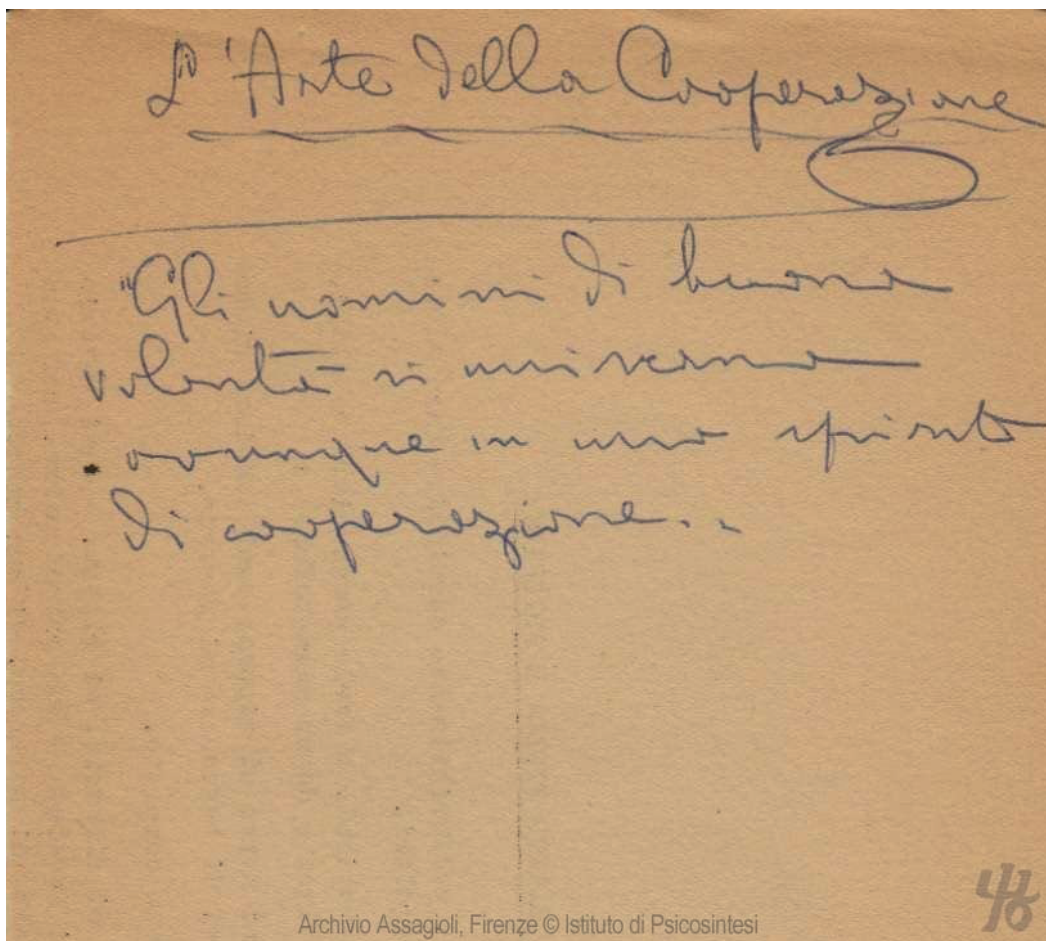 L'Arte della Cooperazione
"Gli uomini di buona
volontà si uniscano
ovunque in uno spirito
di cooperazione..
Archivio Assagioli, Firenze © Istituto di Psicosintesi